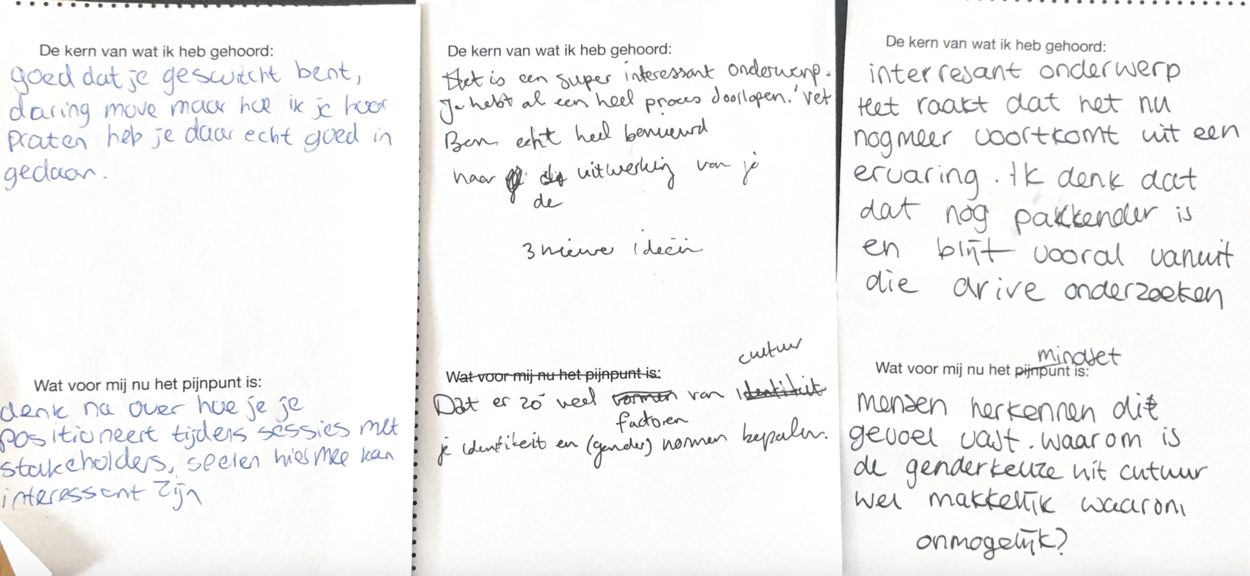 De kern van wat ik heb gehoord:
goed dat je geswitcht bent,
daring move maar hoe ik je hoor
praten heb je daar echt goed in
gedaan.
Wat voor mij nu het pijnpunt is:
denk na over hoe je je
positioneert tijdens sessies met
stakeholders, spelen hiermee kan
interessant zijn
De kern van wat ik heb gehoord:
Het is een super interessant onderwerp.
Je hebt al een heel proces doorlopen. Vet
Ben echt heel benieuwd
naar uitwerking van je
de
3 nieuwe ideeën
Wat voor mij nu het pijnpunt is:
cultuur
Dat er zó veel vormen van identiteit
factoren
je identiteit en (gender) normen bepalen.
De kern van wat ik heb gehoord:
interresant onderwerp
Het raakt dat het nu
nogmeer voortkomt uit een
ervaring. Ik denk dat
dat nog pakkender is
en blijft vooral vanuit
die drive onderzoeken
mindset
Wat voor mij nu het pijnpunt is:
mensen herkennen dit
gevoel vast. waarom is
de genderkeuze uit cutuur
wel makkelijk waarom
onmogelijk?